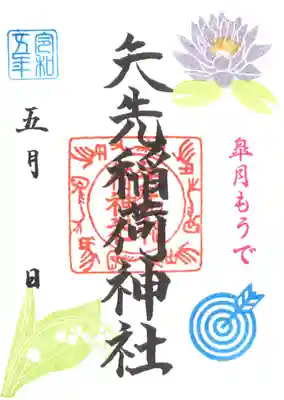 皐月もうで
矢先稲荷神社
令和
五年
五月 日